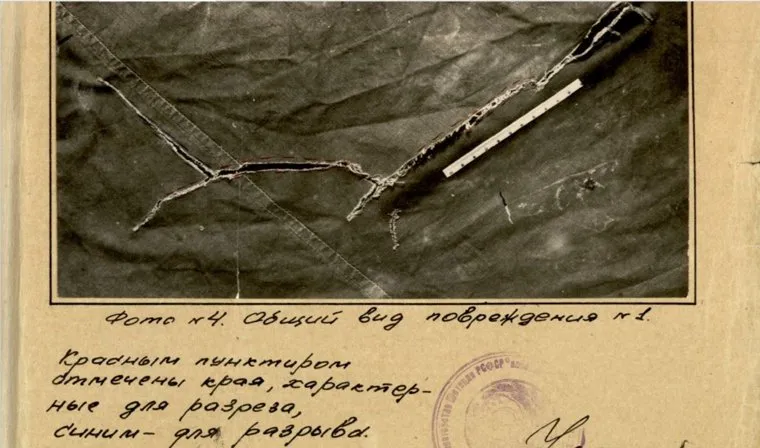 Фото №4. Общий вид повреждения №1.
Красным пунктиром
отмечены края, характер-
ные для разреза,
синим – для разрыва.
РСФСР